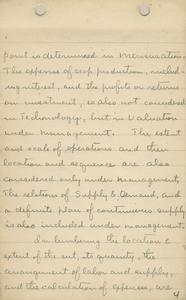 point is determined in Mensuration.
The expense of crop production, includ-
ing interest, and the profits or returns
on investment, is also not considered
in Technology, but in Valuation
under management. The extent
and scale of operations and their
location and sequence are also
considered only under Management.
The relations of Supply & Demand, and
a definite plan of continuous supply
is also included under management.
In lumbering the location &
extent of the cut, its quantity, the
arrangement of labor and supply,
and the calculation of expense, are